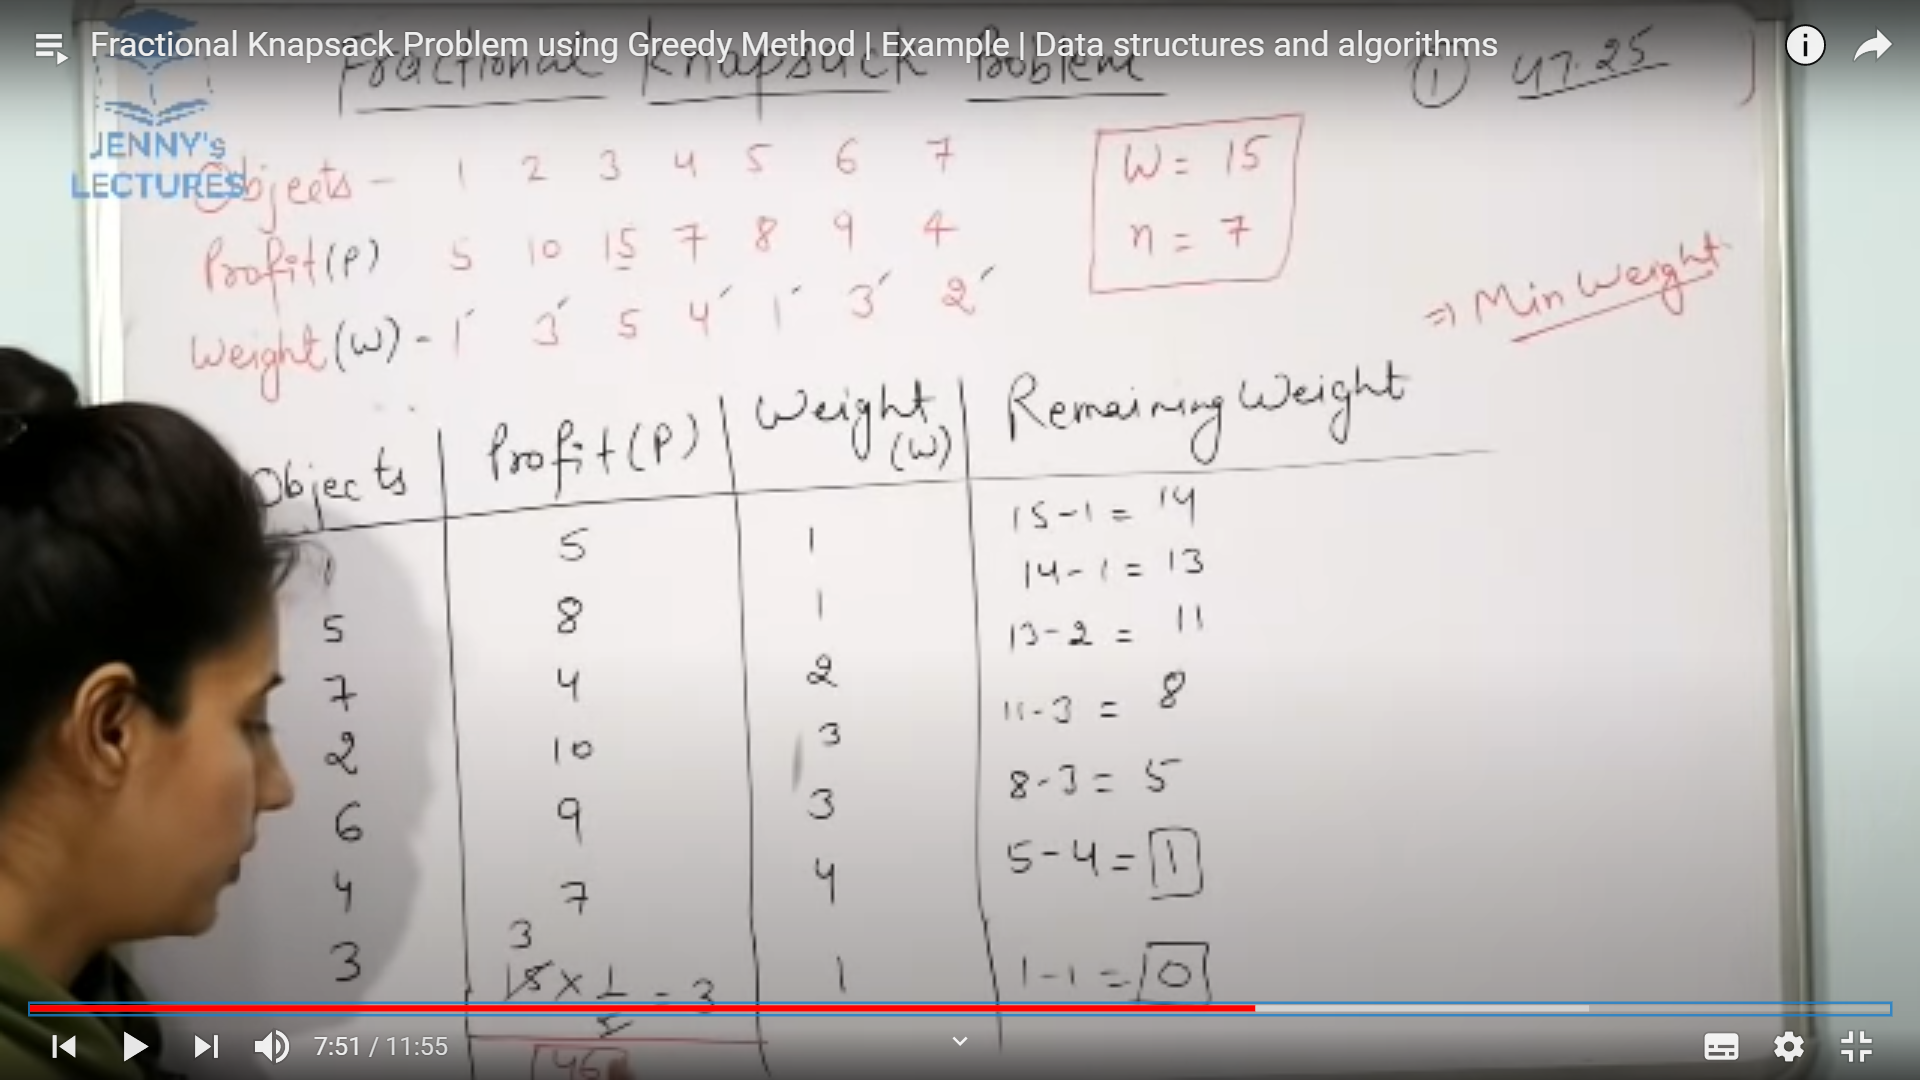 Fractional Knapsack Problem using Greedy Method | Example | Data structures and algorithms
Fractional Knapsack Problem
① 47.25
JENNY's
LECTURES
Objects - 1 2 3 4 5 6 7
Profit(P) 5 10 15 7 8 9 4
Weight(W) - 1 3 5 4 1 3 2
W = 15
n = 7
⇒ Min Weight
Objects Profit(P) Weight (W) Remaining Weight
1 5 1 15-1 = 14
5 8 1 14-1 = 13
7 4 2 13-2 = 11
2 10 3 11-3 = 8
6 9 3 8-3 = 5
4 7 4 5-4 = 1
3
3 15 × 1 = 3 1 1-1 = 0
5
46
7:51 / 11:55